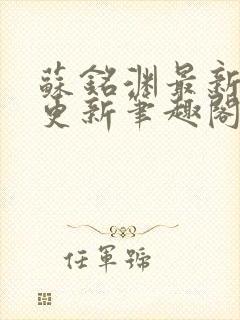 蘇銘淵最新
更新筆趣閣
任軍號